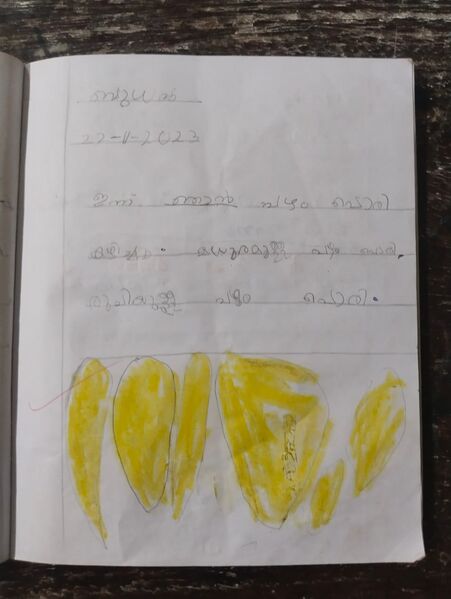 ബുധൻ
22-11-2023
ഇന്ന് ഞാൻ പഴം പൊരി
കഴിച്ചു. മധുരമുള്ള പഴം പൊരി.
രുചിയുള്ള പഴം പൊരി.